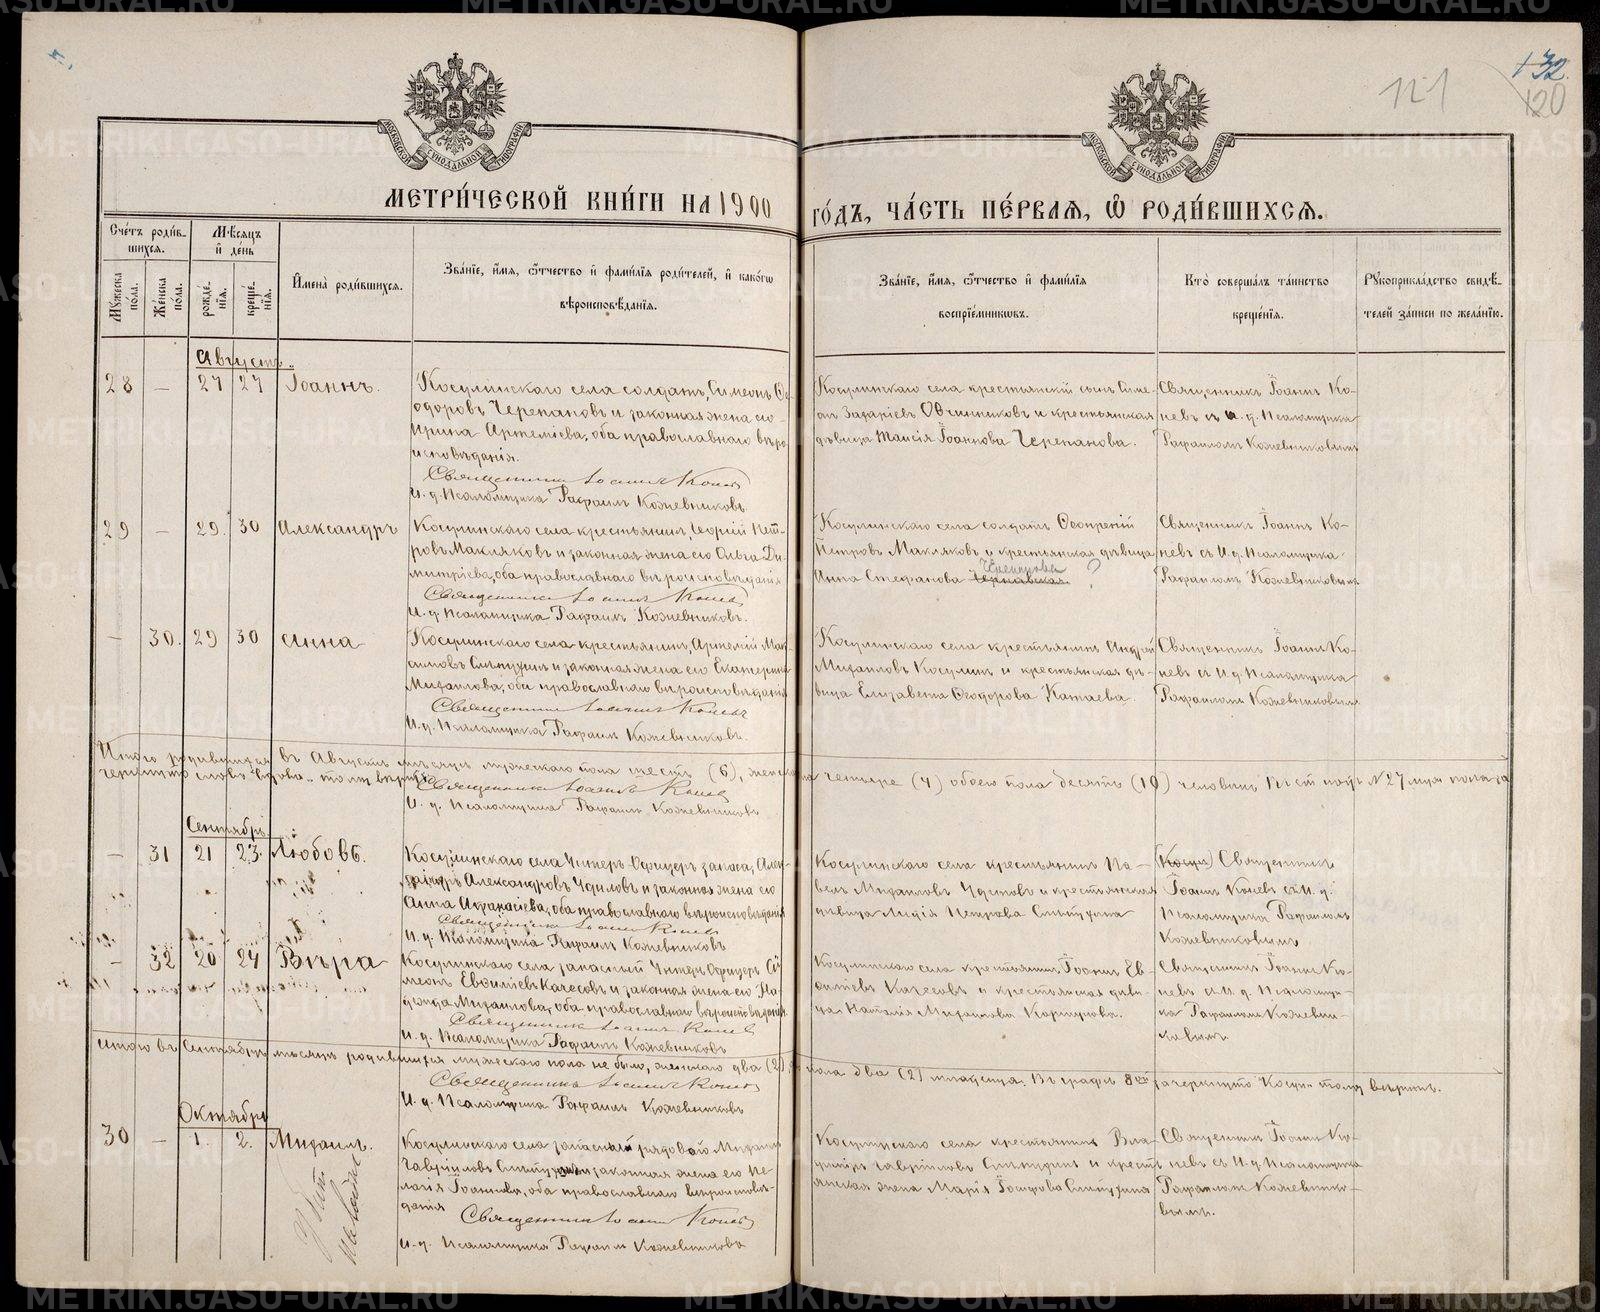 132.
121
120
МОСКОВСКОЙ СѴНОДАЛЬНОЙ ТИПОГРАФІИ
МОСКОВСКОЙ СѴНОДАЛЬНОЙ ТИПОГРАФІИ
МЕТРИ́ЧЕСКОЙ КНИ́ГИ НА 1900 ГО́ДЪ, ЧА́СТЬ ПЕ́РВАЯ, Ѽ РОДИ́ВШИХСЯ.
Сче́тъ роди́в-
шихся.
Мѣ́сяцъ
и де́нь
Му́жеска по́ла.
Же́нска по́ла.
рожде́-
нїя.
креще́-
нїя.
И҆мена̀ роди́вшихся.
Зва́нїе, и҆́мя, ѻ҆́тчество и҆ фами́лїя роди́телей, и҆ како́гѡ
вѣроисповѣ́данїя.
Зва́нїе, и҆́мя, ѻ҆́тчество и҆ фами́лїя
воспрїе́мниковъ.
Кто̀ соверша́лъ та́инство
креще́нїя.
Рукоприкла́дство свидѣ́-
телей за́писи по жела́нїю.
Августъ.
28 — 27 27 Іоаннъ.
Косулинскаго села солдатъ, Симеонъ Ѳе-
одоровъ Черепановъ и законная жена его
Ирина Артеміева, оба православнаго вѣро-
исповѣданія.
Священникъ Іоаннъ Коневъ
И. д. Псаломщика Рафаилъ Кожевниковъ.
Косулинскаго села крестьянскій сынъ Симе-
онъ Захаріевъ Овчинниковъ и крестьянская
дѣвица Таисія Іоаннова Черепанова.
Священникъ Іоаннъ Ко-
невъ съ и. д. Псаломщика
Рафаиломъ Кожевниковымъ
29 — 29. 30 Александръ
Косулинскаго села крестьянинъ, Георгій Пет-
ровъ Макляковъ и законная жена его Ольга Ди-
митріева, оба православнаго вѣроисповѣданія
Священникъ Іоаннъ Коневъ
И. д. Псаломщика Рафаилъ Кожевниковъ.
Косулинскаго села солдатъ
Петровъ Макляковъ и крестьянская дѣвица
Анна Стефанова Черепанова ?
Священникъ Іоаннъ Ко-
невъ съ И. д. Псаломщика
Рафаиломъ Кожевниковымъ
— 30. 29 30 Анна
Косулинскаго села крестьянинъ, Артемій Мак-
симовъ и законная жена его Екатерина
Михаилова, оба православнаго вѣроисповѣданія
Священникъ Іоаннъ Коневъ
И. д. Псаломщика Рафаилъ Кожевниковъ.
Косулинскаго села крестьянинъ Андрей
Михаиловъ Косулинъ и крестьянская дѣ-
вица Елизавета Ѳеодорова Катаева.
Священникъ Іоаннъ Ко-
невъ съ И. д. Псаломщика
Рафаиломъ Кожевниковымъ
Итого родившихся въ Августѣ мѣсяцѣ мужескаго пола шесть (6), женска четыре (4) обоего пола десять (10) человѣкъ. № 27
тому вѣрить.
Священникъ Іоаннъ Коневъ
И. д. Псаломщика Рафаилъ Кожевниковъ
Сентябрь.
— 31 21 23. Любовь.
Косулинскаго села Унтеръ-Офицеръ запаса, Алек-
сандръ Александровъ и законная жена его
Анна Аѳанасіева, оба православнаго вѣроисповѣданія
Священникъ Іоаннъ Коневъ
И. д. Псаломщика Рафаилъ Кожевниковъ
Косулинскаго села крестьянинъ Па-
велъ Михаиловъ и крестьянская
дѣвица Лидія Петрова
(Косул) Священникъ
Іоаннъ Коневъ съ И. д.
Псаломщика Рафаиломъ
Кожевниковымъ
— 32 20 24 Вѣра
Косулинскаго села запасный Унтеръ Офицеръ Си-
меонъ и законная жена его На-
дежда Михаилова, оба православнаго вѣроисповѣданія.
Священникъ Іоаннъ Коневъ
И. д. Псаломщика Рафаилъ Кожевниковъ
Косулинскаго села крестьянинъ, Іоаннъ Ев-
и крестьянская дѣви-
ца Наталія Михаилова
Священникъ Іоаннъ Ко-
невъ съ И. д. Псаломщи-
ка Рафаиломъ Кожевни-
ковымъ.
Итого въ Сентябрѣ мѣсяцѣ родившихся мужескаго пола не было, женскаго два (2), пола два (2) младенца. Въ графѣ 8й зачеркнуто "Косул" тому вѣрить.
Священникъ Іоаннъ Коневъ
И. д. Псаломщика Рафаилъ Кожевниковъ
Октябрь
30 — 1. 2. Михаилъ.
Косулинскаго села запасный рядовой Михаилъ
Гавріиловъ и законная жена его Пе-
лагія Іоаннова, оба православнаго вѣроисповѣ-
данія
Священникъ Іоаннъ Коневъ
И. д. Псаломщика Рафаилъ Кожевниковъ
Косулинскаго села крестьянинъ Вла-
диміръ Гавріиловъ и кресть-
янская жена Марія
Священникъ Іоаннъ Ко-
невъ съ И. д. Псаломщика
Рафаиломъ Кожевнико-
вымъ.
METRIKI.GASO-URAL.RU